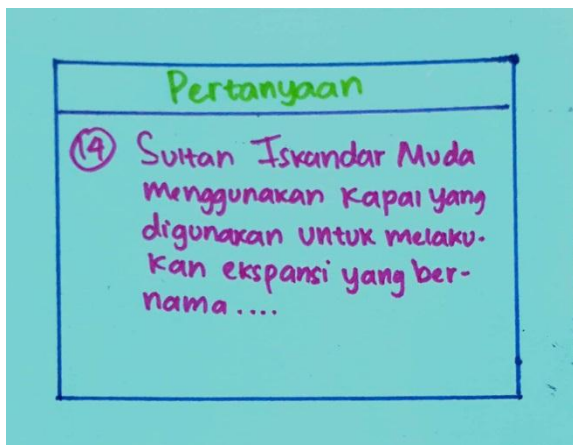 Pertanyaan
14 Sultan Iskandar Muda
menggunakan kapal yang
digunakan untuk melaku-
kan ekspansi yang ber-
nama....